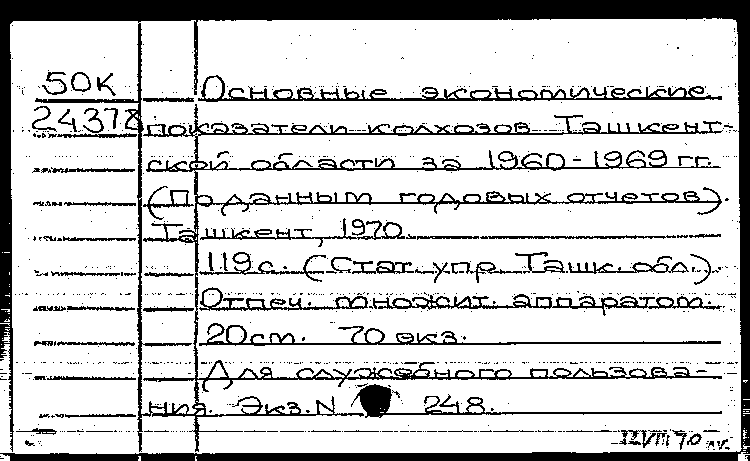 50К Основные экономические
24378 показатели колхозов Ташкент-
ской области за 1960-1969 гг.
(По данным годовых отчетов).
Ташкент, 1970.
119 с. (Стат. упр. Ташк. обл.).
Отпеч. множит. аппаратом.
20 см. 70 экз.
Для служебного пользова-
ния. Экз. N 248.